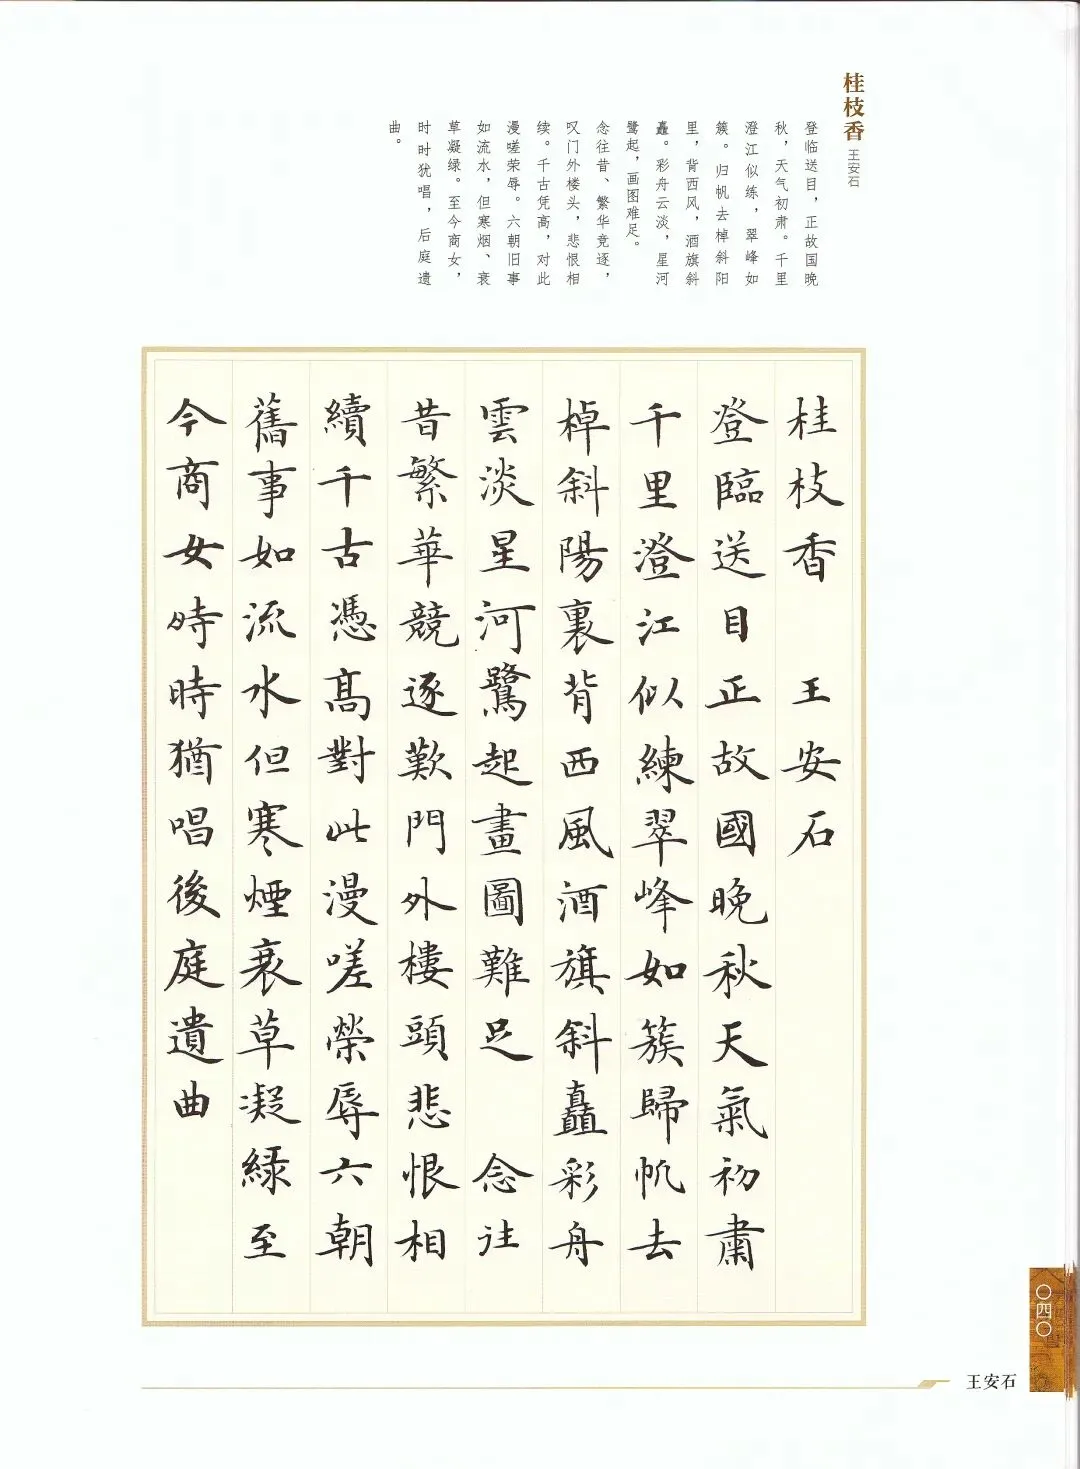 桂枝香
王安石
登临送目，正故国晚
秋，天气初肃。千里
澄江似练，翠峰如
簇。归帆去棹斜阳
里，背西风，酒旗斜
矗。彩舟云淡，星河
鹭起，画图难足。
念往昔、繁华竞逐，
叹门外楼头，悲恨相
续。千古凭高，对此
漫嗟荣辱。六朝旧事
如流水，但寒烟、衰
草凝绿。至今商女，
时时犹唱，后庭遗
曲。
桂枝香 王安石
登臨送目正故國晚秋天氣初肅
千里澄江似練翠峰如簇歸帆去
棹斜陽裏背西風酒旗斜矗彩舟
雲淡星河鷺起畫圖難足 念往
昔繁華競逐歎門外樓頭悲恨相
續千古憑高對此漫嗟榮辱六朝
舊事如流水但寒煙衰草凝緑至
今商女時時猶唱後庭遺曲
〇四〇
王安石